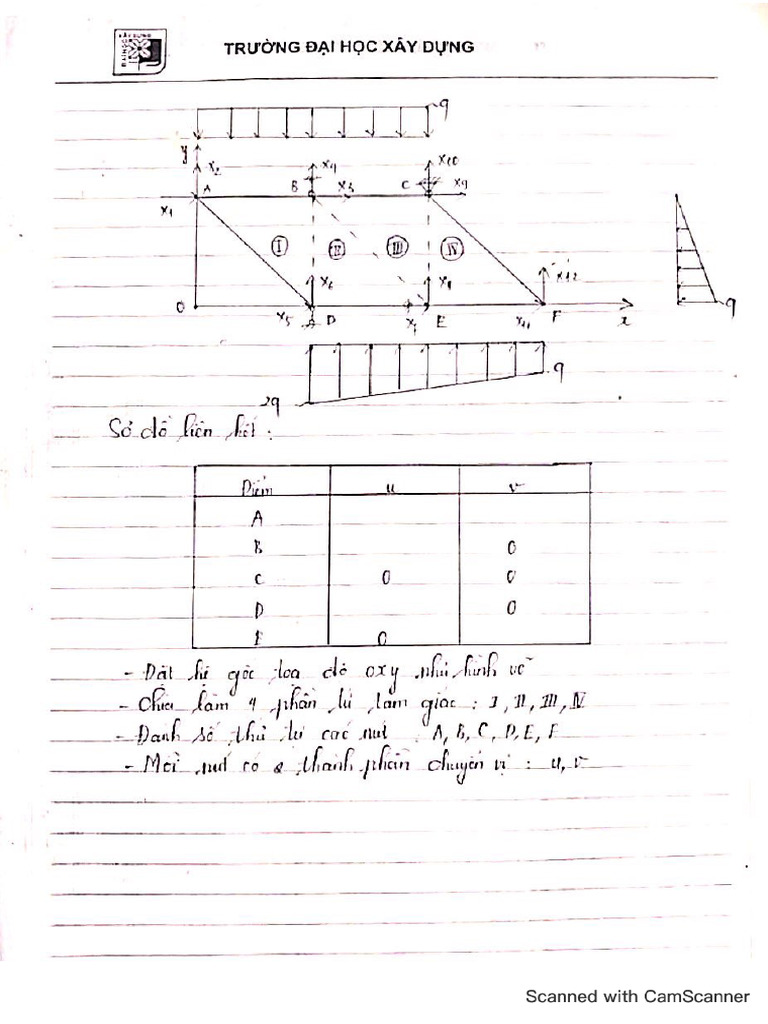 TRƯỜNG ĐẠI HỌC XÂY DỰNG
q
y x2 x4 x10
A B x3 C x9
x1
I II III IV
x6 x8 x12
O x5 D x7 E x11 F x q
q
2q
Sơ đồ liên kết :
Điểm u v
A
B 0
C 0 0
D 0
F 0
- Đặt hệ gốc toạ độ oxy như hình vẽ
- Chia làm 4 phần tử tam giác : I, II, III, IV
- Đánh số thứ tự các nút : A, B, C, D, E, F
- Mỗi nút có 2 thành phần chuyển vị : u, v
Scanned with CamScanner